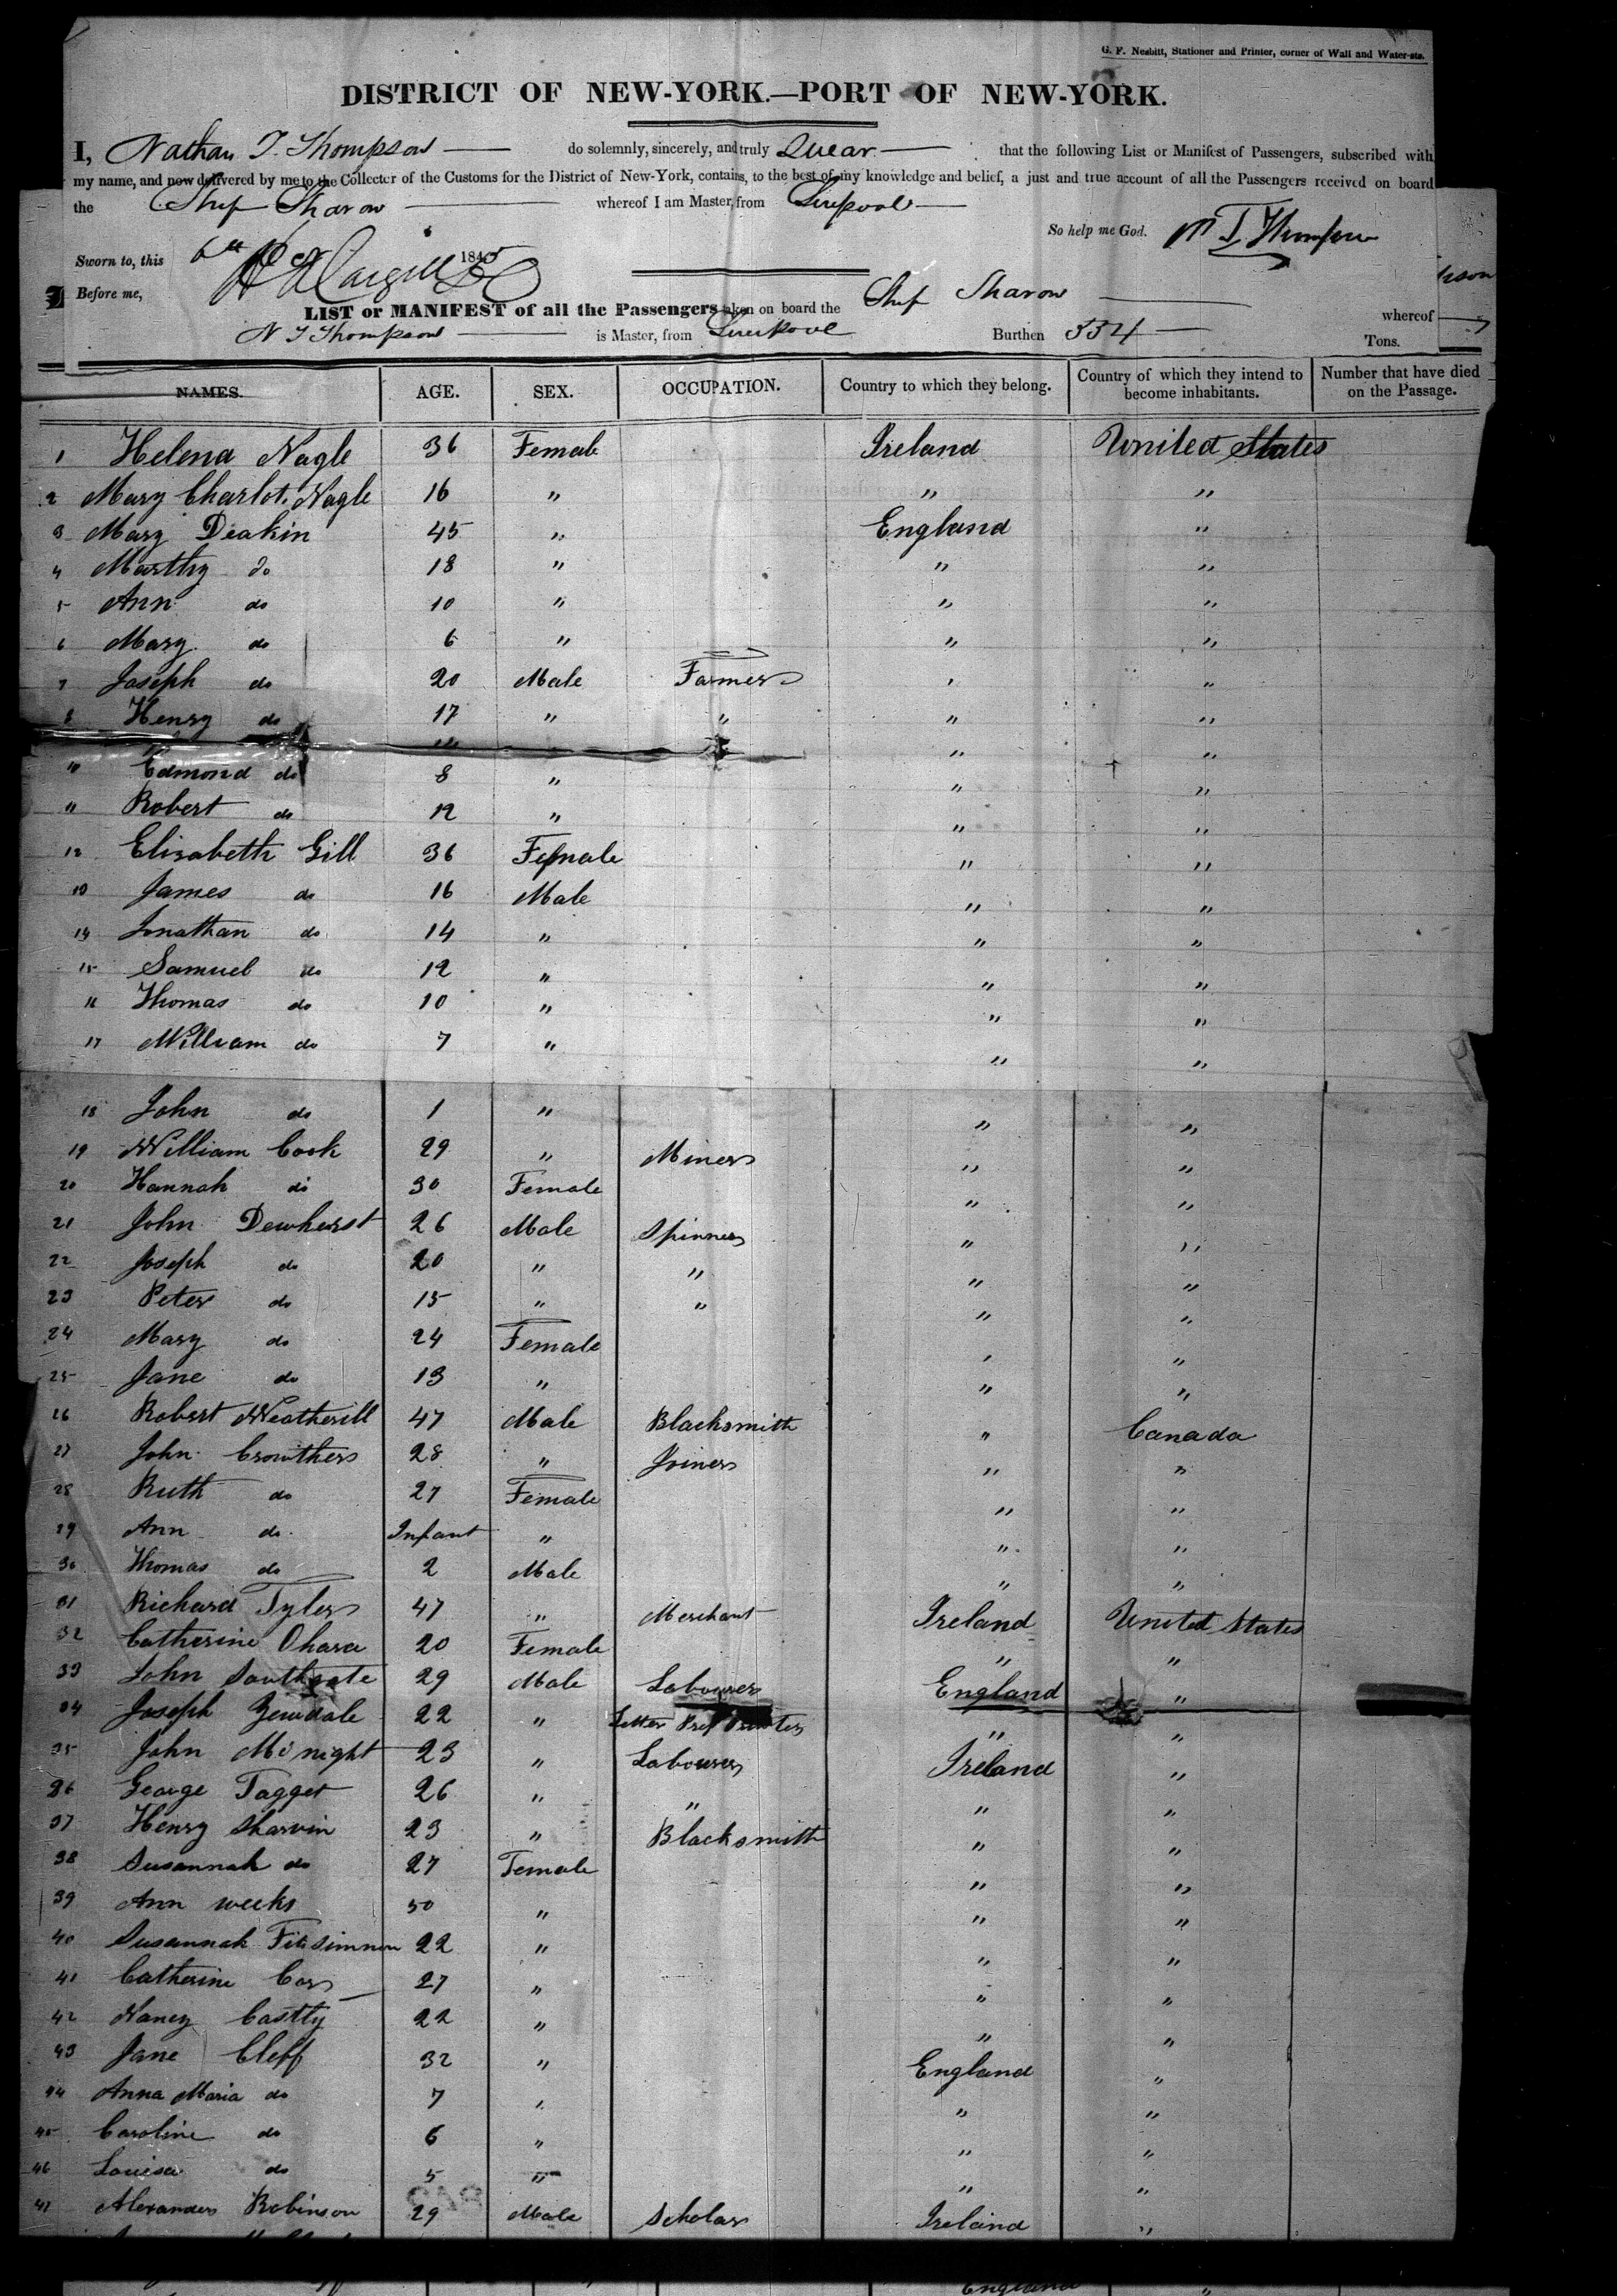 G. F. Nesbitt, Stationer and Printer, corner of Wall and Water-sts.
DISTRICT OF NEW-YORK.—PORT OF NEW-YORK.
I, Nathan T. Thompson do solemnly, sincerely, and truly Swear that the following List or Manifest of Passengers, subscribed with
my name, and now delivered by me to the Collector of the Customs for the District of New-York, contains, to the best of my knowledge and belief, a just and true account of all the Passengers received on board
the Ship Sharon whereof I am Master, from Liverpool
So help me God. N T Thompson
Sworn to, this 6th 1845
Before me,
LIST or MANIFEST of all the Passengers taken on board the Ship Sharon whereof
N T Thompson is Master, from Liverpool Burthen 334 Tons.
NAMES. AGE. SEX. OCCUPATION. Country to which they belong. Country of which they intend to become inhabitants. Number that have died on the Passage.
1 Helena Nagle 36 Female Ireland United States
2 Mary Charlot. Nagle 16 " " "
3 Mary Deakin 45 " England "
4 Marthy do 18 " " "
5 Ann do 10 " " "
6 Mary do 6 " " "
7 Joseph do 20 Male Farmer " "
8 Henry do 17 " " " "
" "
10 Edmond do 8 " " "
11 Robert do 12 " " "
12 Elisabeth Gill 36 Female " "
13 James do 16 Male " "
14 Jonathan do 14 " " "
15 Samuel do 12 " " "
16 Thomas do 10 " " "
17 William do 7 " " "
18 John do 1 " " "
19 William Cook 29 " Miner " "
20 Hannah do 30 Female " "
21 John Dewherst 26 Male Spinner " "
22 Joseph do 20 " " " "
23 Peter do 15 " " " "
24 Mary do 24 Female " "
25 Jane do 13 " " "
26 Robert Weatherill 47 Male Blacksmith " Canada
27 John Crowther 28 " Joiner " "
28 Ruth do 27 Female " "
29 Ann do Infant " " "
30 Thomas do 2 Male " "
31 Richard Tyler 47 " Merchant Ireland United States
32 Catherine Ohara 20 Female " "
33 John Southgate 29 Male Labourer England "
34 Joseph Yewdale 22 " Letter Pres Printer " "
35 John McNight 23 " Labourer Ireland "
36 George Tagget 26 " " " "
37 Henry Sharvin 23 " Blacksmith " "
38 Susannah do 27 Female " "
39 Ann weeks 50 " " "
40 Susannah Fitzsimmon 22 " " "
41 Catherine 27 " " "
42 Nancy Castly 22 " " "
43 Jane Cleff 32 " England "
44 Anna Maria do 7 " " "
45 Caroline do 6 " " "
46 Louisa do 5 " " "
47 Alexander Robinson 29 Male Scholar Ireland "
England "